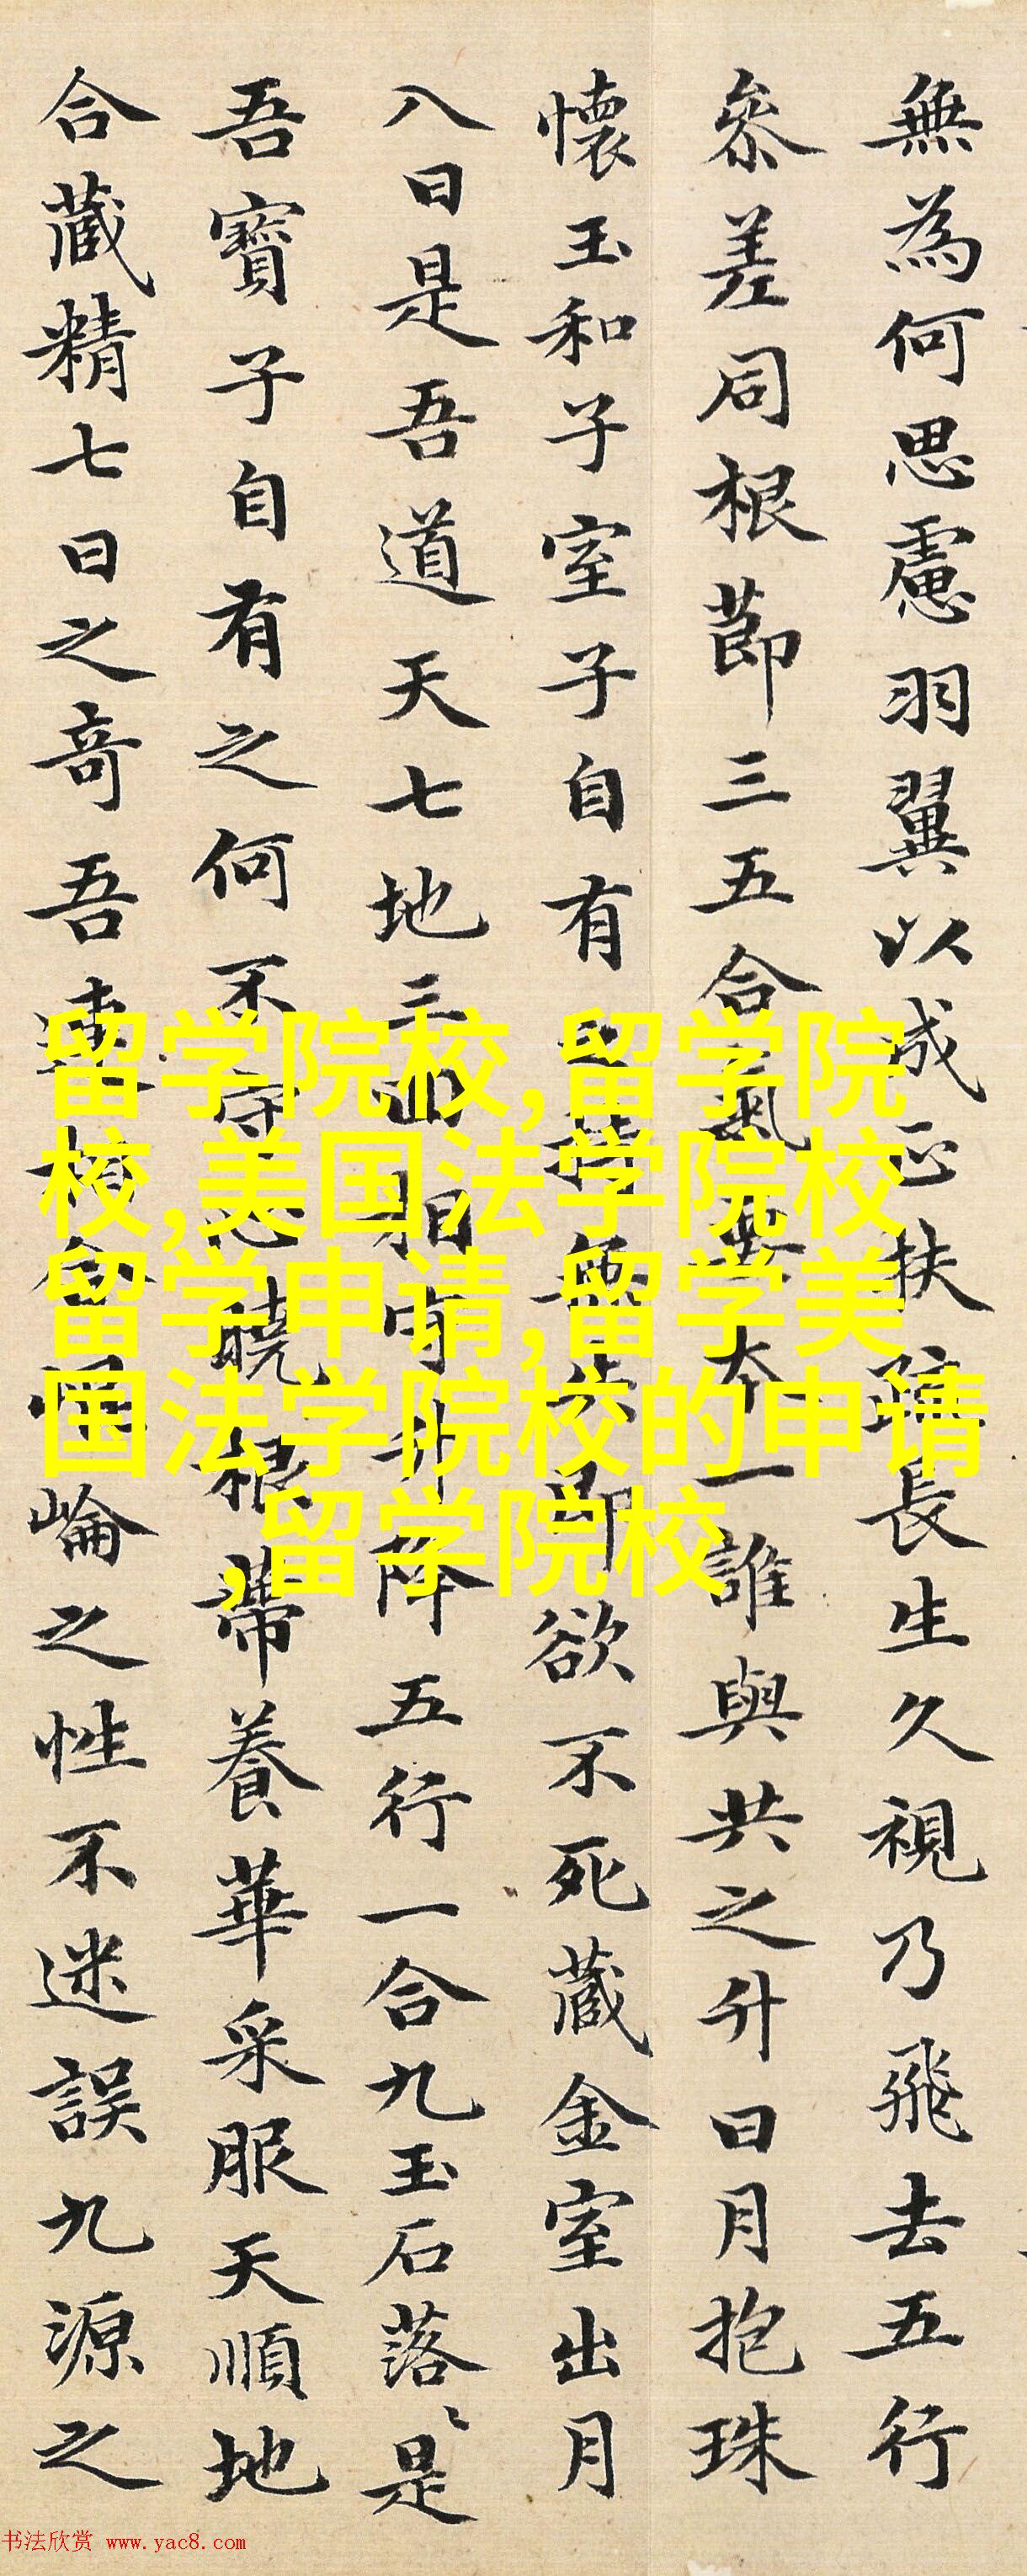 無為何思慮羽翼以成正扶疏長生久視乃飛去五行
叅差同根莭三五合氣要本一誰與共之升日月抱珠
懷玉和子室子自有之持無失即欲不死藏金室出月
入日是吾道天七地三回相守升降五行一合九玉石落〻是
吾寶子自有之何不守心曉根蔕養華采服天順地
合藏精七日之奇吾連相合崐崘之性不迷誤九源之
留学院校,留学院
校,美国法学院校
留学申请,留学美
国法学院校的申请
,留学院校
书法欣赏 www.yac8.com